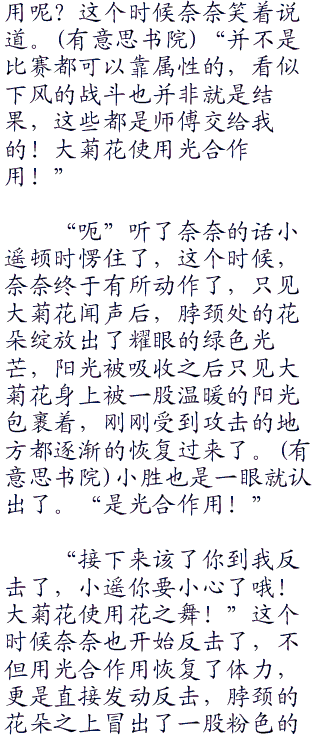 用呢？这个时候奈奈笑着说
道。(有意思书院) “并不是
比赛都可以靠属性的，看似
下风的战斗也并非就是结
果，这些都是师傅交给我
的！大菊花使用光合作
用！”
“呃”听了奈奈的话小
遥顿时愣住了，这个时候，
奈奈终于有所动作了，只见
大菊花闻声后，脖颈处的花
朵绽放出了耀眼的绿色光
芒，阳光被吸收之后只见大
菊花身上被一股温暖的阳光
包裹着，刚刚受到攻击的地
方都逐渐的恢复过来了。(有
意思书院)小胜也是一眼就认
出了。“是光合作用！”
“接下来该了你到我反
击了，小遥你要小心了哦！
大菊花使用花之舞！”这个
时候奈奈也开始反击了，不
但用光合作用恢复了体力，
更是直接发动反击，脖颈的
花朵之上冒出了一股粉色的